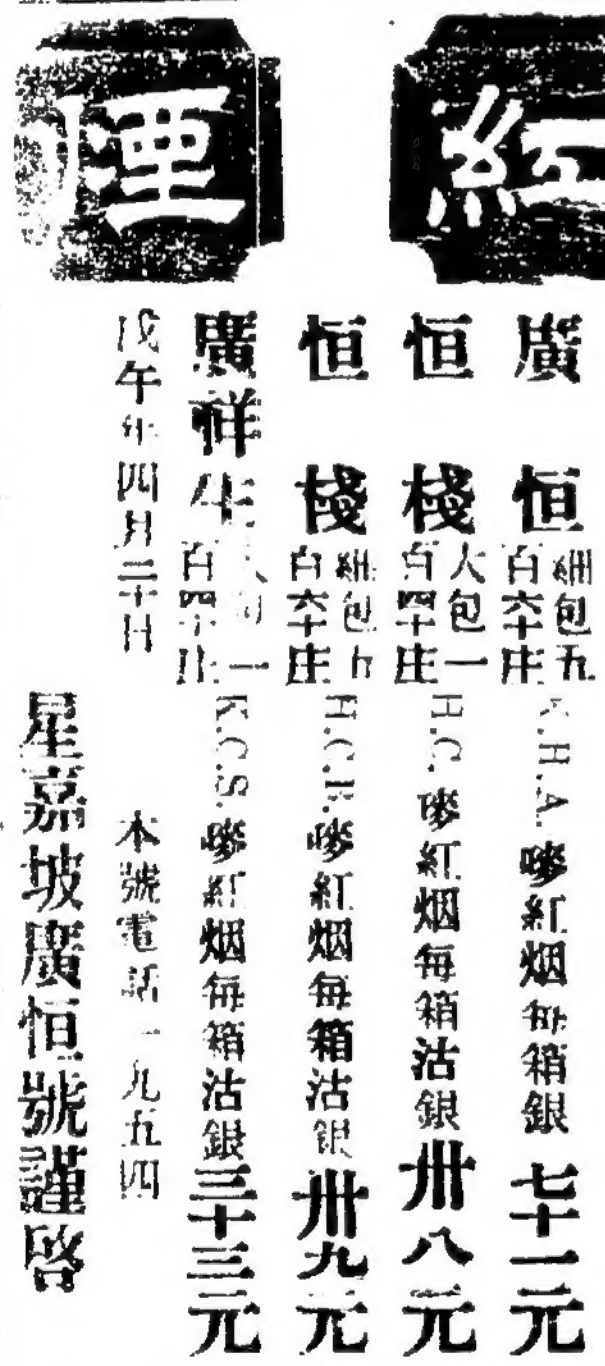 紅煙
廣恒 細包五百六十庄 K.H.A. 嘜紅烟每箱銀七十一元
恒棧 大包一百四十庄 H.C. 嘜紅烟每箱沽銀卅八元
恒棧 細包五百六十庄 H.C.K. 嘜紅烟每箱沽銀卅九元
廣祥生 大包一百四十庄 K.C.S. 嘜紅烟每箱沽銀三十三元
戊午年四月二十日 本號電話一九五四
星嘉坡廣恒號謹啓